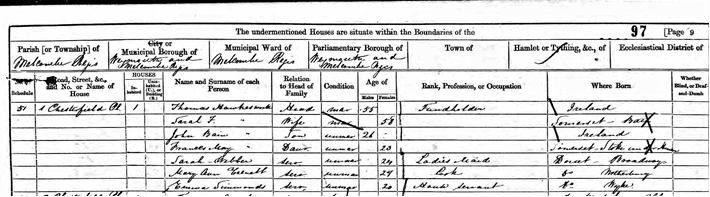 The undermentioned Houses are situate within the Boundaries of the
97 [Page 9
Parish [or Township] of
City or Municipal Borough of
Municipal Ward of
Parliamentary Borough of
Town of
Hamlet or Tything, &c., of
Ecclesiastical District of
Melcombe Regis
Weymouth and Melcombe Regis
Melcombe Regis
Weymouth and Melcombe Regis
Schedule
Road, Street, &c., and No. or Name of House
HOUSES
Inhabited
Uninhabited (U.), or Building (B.)
Name and Surname of each Person
Relation to Head of Family
Condition
Age of
Males
Females
Rank, Profession, or Occupation
Where Born
Whether Blind, or Deaf-and-Dumb
51 1 Chesterfield Pl 1 Thomas Head mar 55 Fundholder Ireland
Sarah F. " Wife mar 58 Somerset
John Bain " Son unmar 26 Ireland
Frances May " Daur unmar 23 Somerset Stoke
Sarah serv unmar 24 Ladies Maid Dorset Broadway
Mary Ann serv unmar 29 Cook Do
Emma Simmonds serv unmar 20 servant Do Wyke